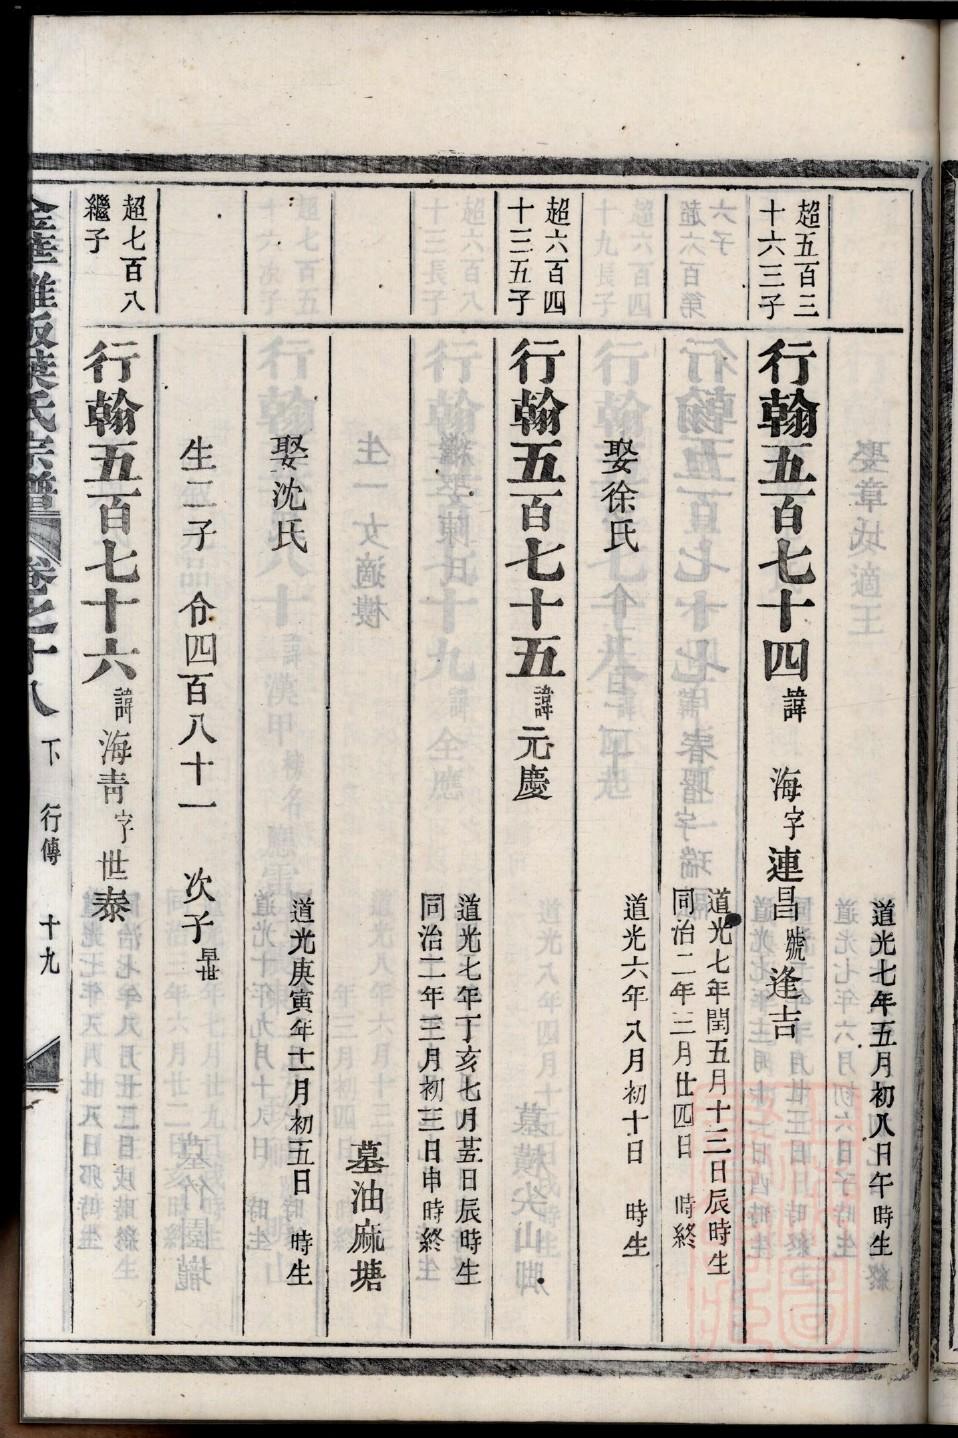 道光七年五月初八日午時生
超五百三
十六三子
行翰五百七十四 諱 海 字 連昌 號 逢吉
道光七年閏五月十三日辰時生
同治二年三月廿四日 時終
娶徐氏
道光六年八月初十日 時生
超六百四
十三五子
行翰五百七十五 諱 元慶
道光七年丁亥七月廿五日辰時生
同治二年三月初三日申時終
墓油麻塘
娶沈氏
道光庚寅年十一月初五日 時生
生二子 令四百八十一 次子
超七百八
繼子
行翰五百七十六 諱 海青 字 世泰
葉氏宗譜 卷之十八 下 行傳 十九